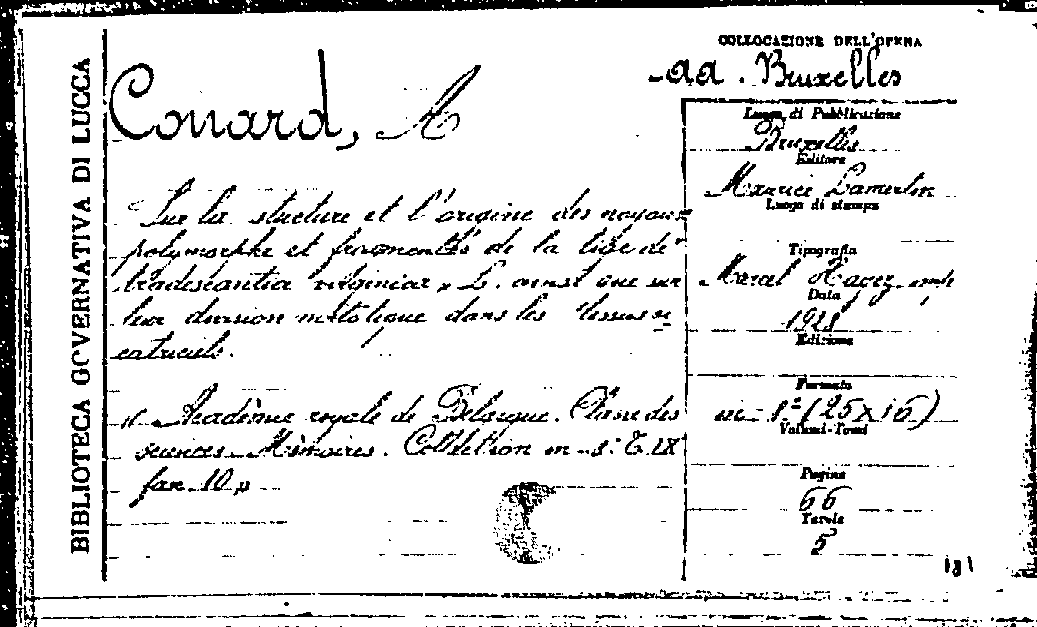 BIBLIOTECA GOVERNATIVA DI LUCCA
COLLOCAZIONE DELL'OPERA
aa. Bruxelles
Conard, A
Sur la structure et l'origine des noyaux
polymorphe et fragmentés de la tige de "
tradescantia virginica " L. ainsi que sur
leur division mitotique dans les tissus ci
catriciels.
" Académie royale de Belgique. Classe des
sciences. Mémoires. Collection in-8º T. IX
fasc. 10 "
Luogo di Pubblicazione
Bruxelles
Editore
Maurice Lamertin
Luogo di stampa
Tipografia
Marcel Hayez
Data
1928
Edizione
Formato
in-8º (25x16)
Volumi-Tomi
Pagine
66
Tavole
5